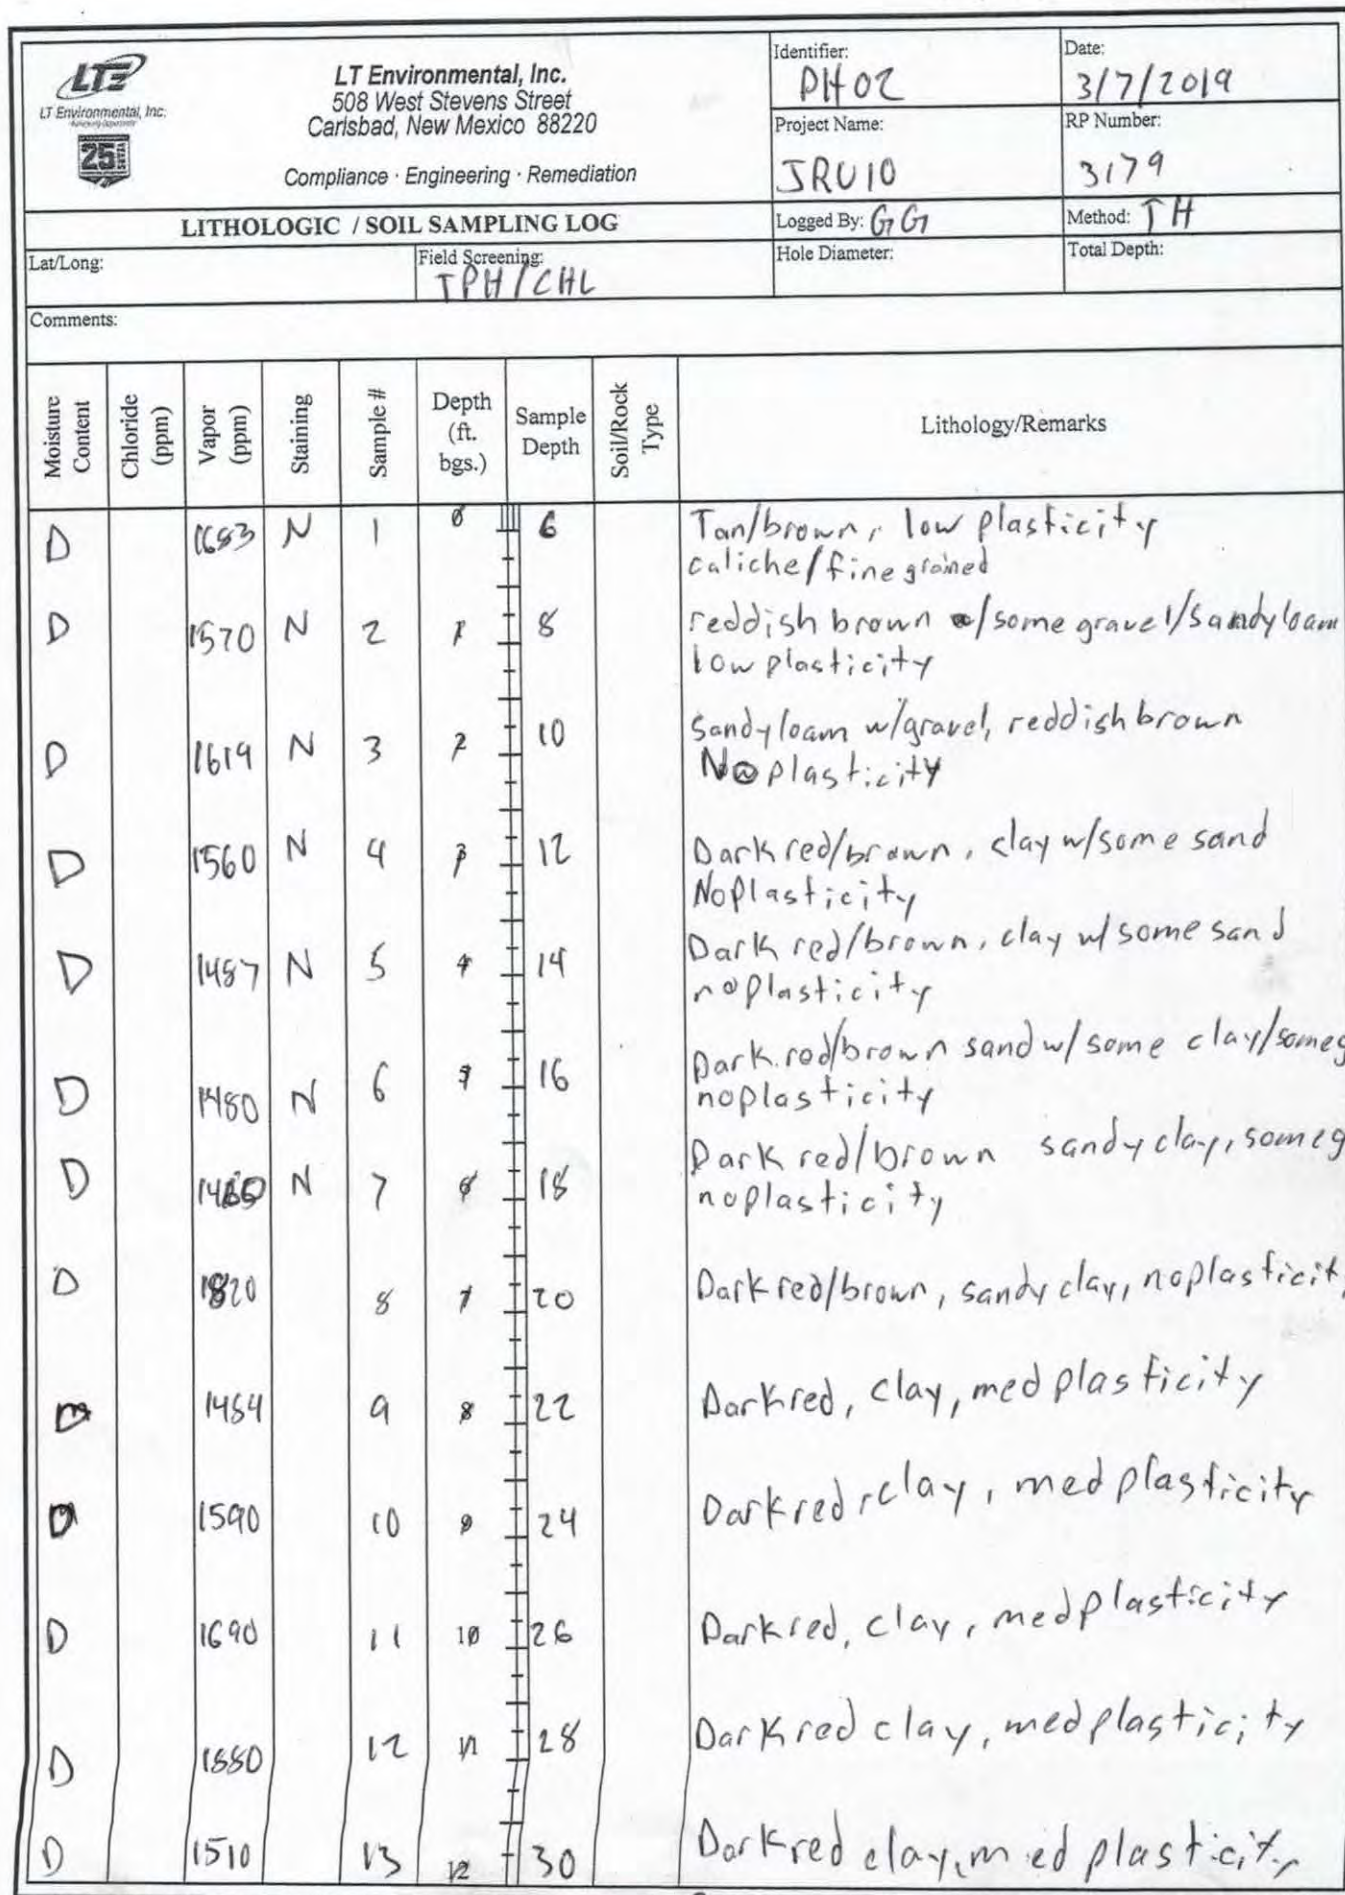 LTE
LT Environmental, Inc.
25 YEARS
LT Environmental, Inc.
508 West Stevens Street
Carlsbad, New Mexico 88220
Compliance · Engineering · Remediation
Identifier:
PH02
Date:
3/7/2019
Project Name:
JRU10
RP Number:
3179
LITHOLOGIC / SOIL SAMPLING LOG
Logged By: GG
Method: TH
Lat/Long:
Field Screening:
TPH/CHL
Hole Diameter:
Total Depth:
Comments:
Moisture Content
Chloride (ppm)
Vapor (ppm)
Staining
Sample #
Depth (ft. bgs.)
Sample Depth
Soil/Rock Type
Lithology/Remarks
D N 1 0 6 Tan/brown, low plasticity
caliche/fine grained
D 1570 N 2 1 8 reddish brown w/some gravel/sandy loam
low plasticity
D 1619 N 3 2 10 Sandy loam w/gravel, reddish brown
No plasticity
D 1560 N 4 3 12 Dark red/brown, clay w/some sand
No plasticity
D 1487 N 5 4 14 Dark red/brown, clay w/ some sand
no plasticity
D 1480 N 6 5 16 Dark red/brown sand w/ some clay/some g
no plasticity
D N 7 6 18 Dark red/brown sandy clay, some g
no plasticity
D 1820 8 7 20 Dark red/brown, sandy clay, no plasticit
1484 9 8 22 Dark red, clay, med plasticity
1590 10 9 24 Dark red, clay, med plasticity
D 1690 11 10 26 Dark red, clay, med plasticity
D 12 11 28 Dark red clay, med plasticity
D 1510 13 12 30 Dark red clay, med plasticity